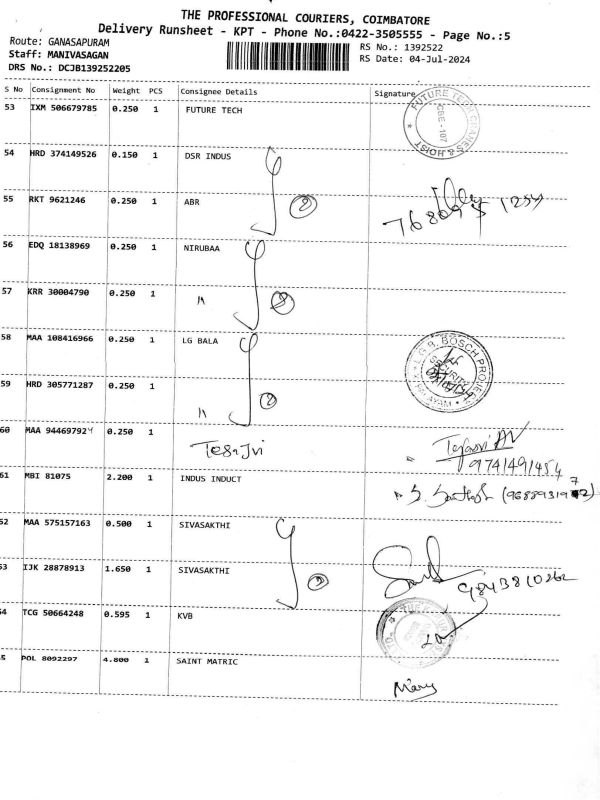 THE PROFESSIONAL COURIERS, COIMBATORE
Delivery Runsheet - KPT - Phone No.:0422-3505555 - Page No.:5
Route: GANASAPURAM RS No.: 1392522
Staff: MANIVASAGAN RS Date: 04-Jul-2024
DRS No.: DCJB139252205
S No Consignment No Weight PCS Consignee Details Signature
53 IXM 506679785 0.250 1 FUTURE TECH
FUTURE TECH CRANES & HOIST
CBE-107
54 HRD 374149526 0.150 1 DSR INDUS
55 RKT 9621246 0.250 1 ABR
56 EDQ 18138969 0.250 1 NIRUBAA
57 KRR 30004790 0.250 1 "
58 MAA 108416966 0.250 1 LG BALA
59 HRD 305771287 0.250 1 "
60 MAA 944697924 0.250 1 Tesajvi
9741491454
61 MBI 81075 2.200 1 INDUS INDUCT
62 MAA 575157163 0.500 1 SIVASAKTHI
63 IJK 28878913 1.650 1 SIVASAKTHI
9843810262
64 TCG 50664248 0.595 1 KVB
65 POL 8092297 4.800 1 SAINT MATRIC
Mary